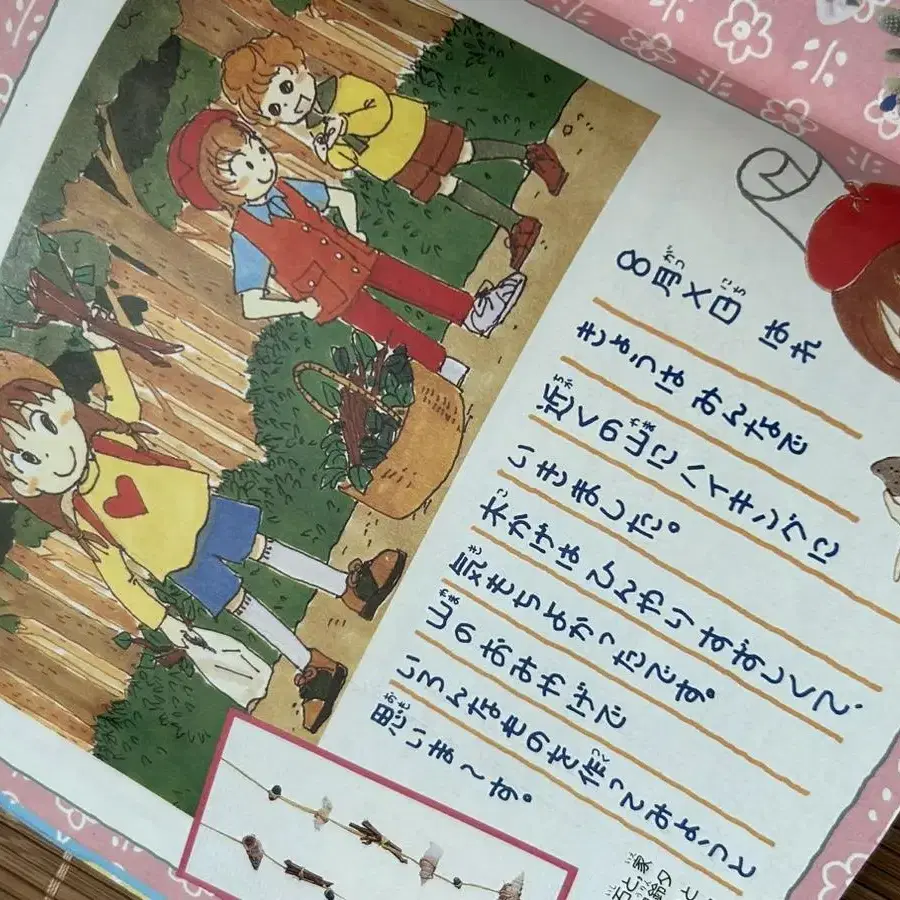 8月×日 はれ
きょうは みんなで
近くの山に ハイキングに
いきました。
木かげは ひんやり すずしくて、
気もちよかったです。
山の おみやげで
いろんなものを 作ってみようと
思いま〜す。